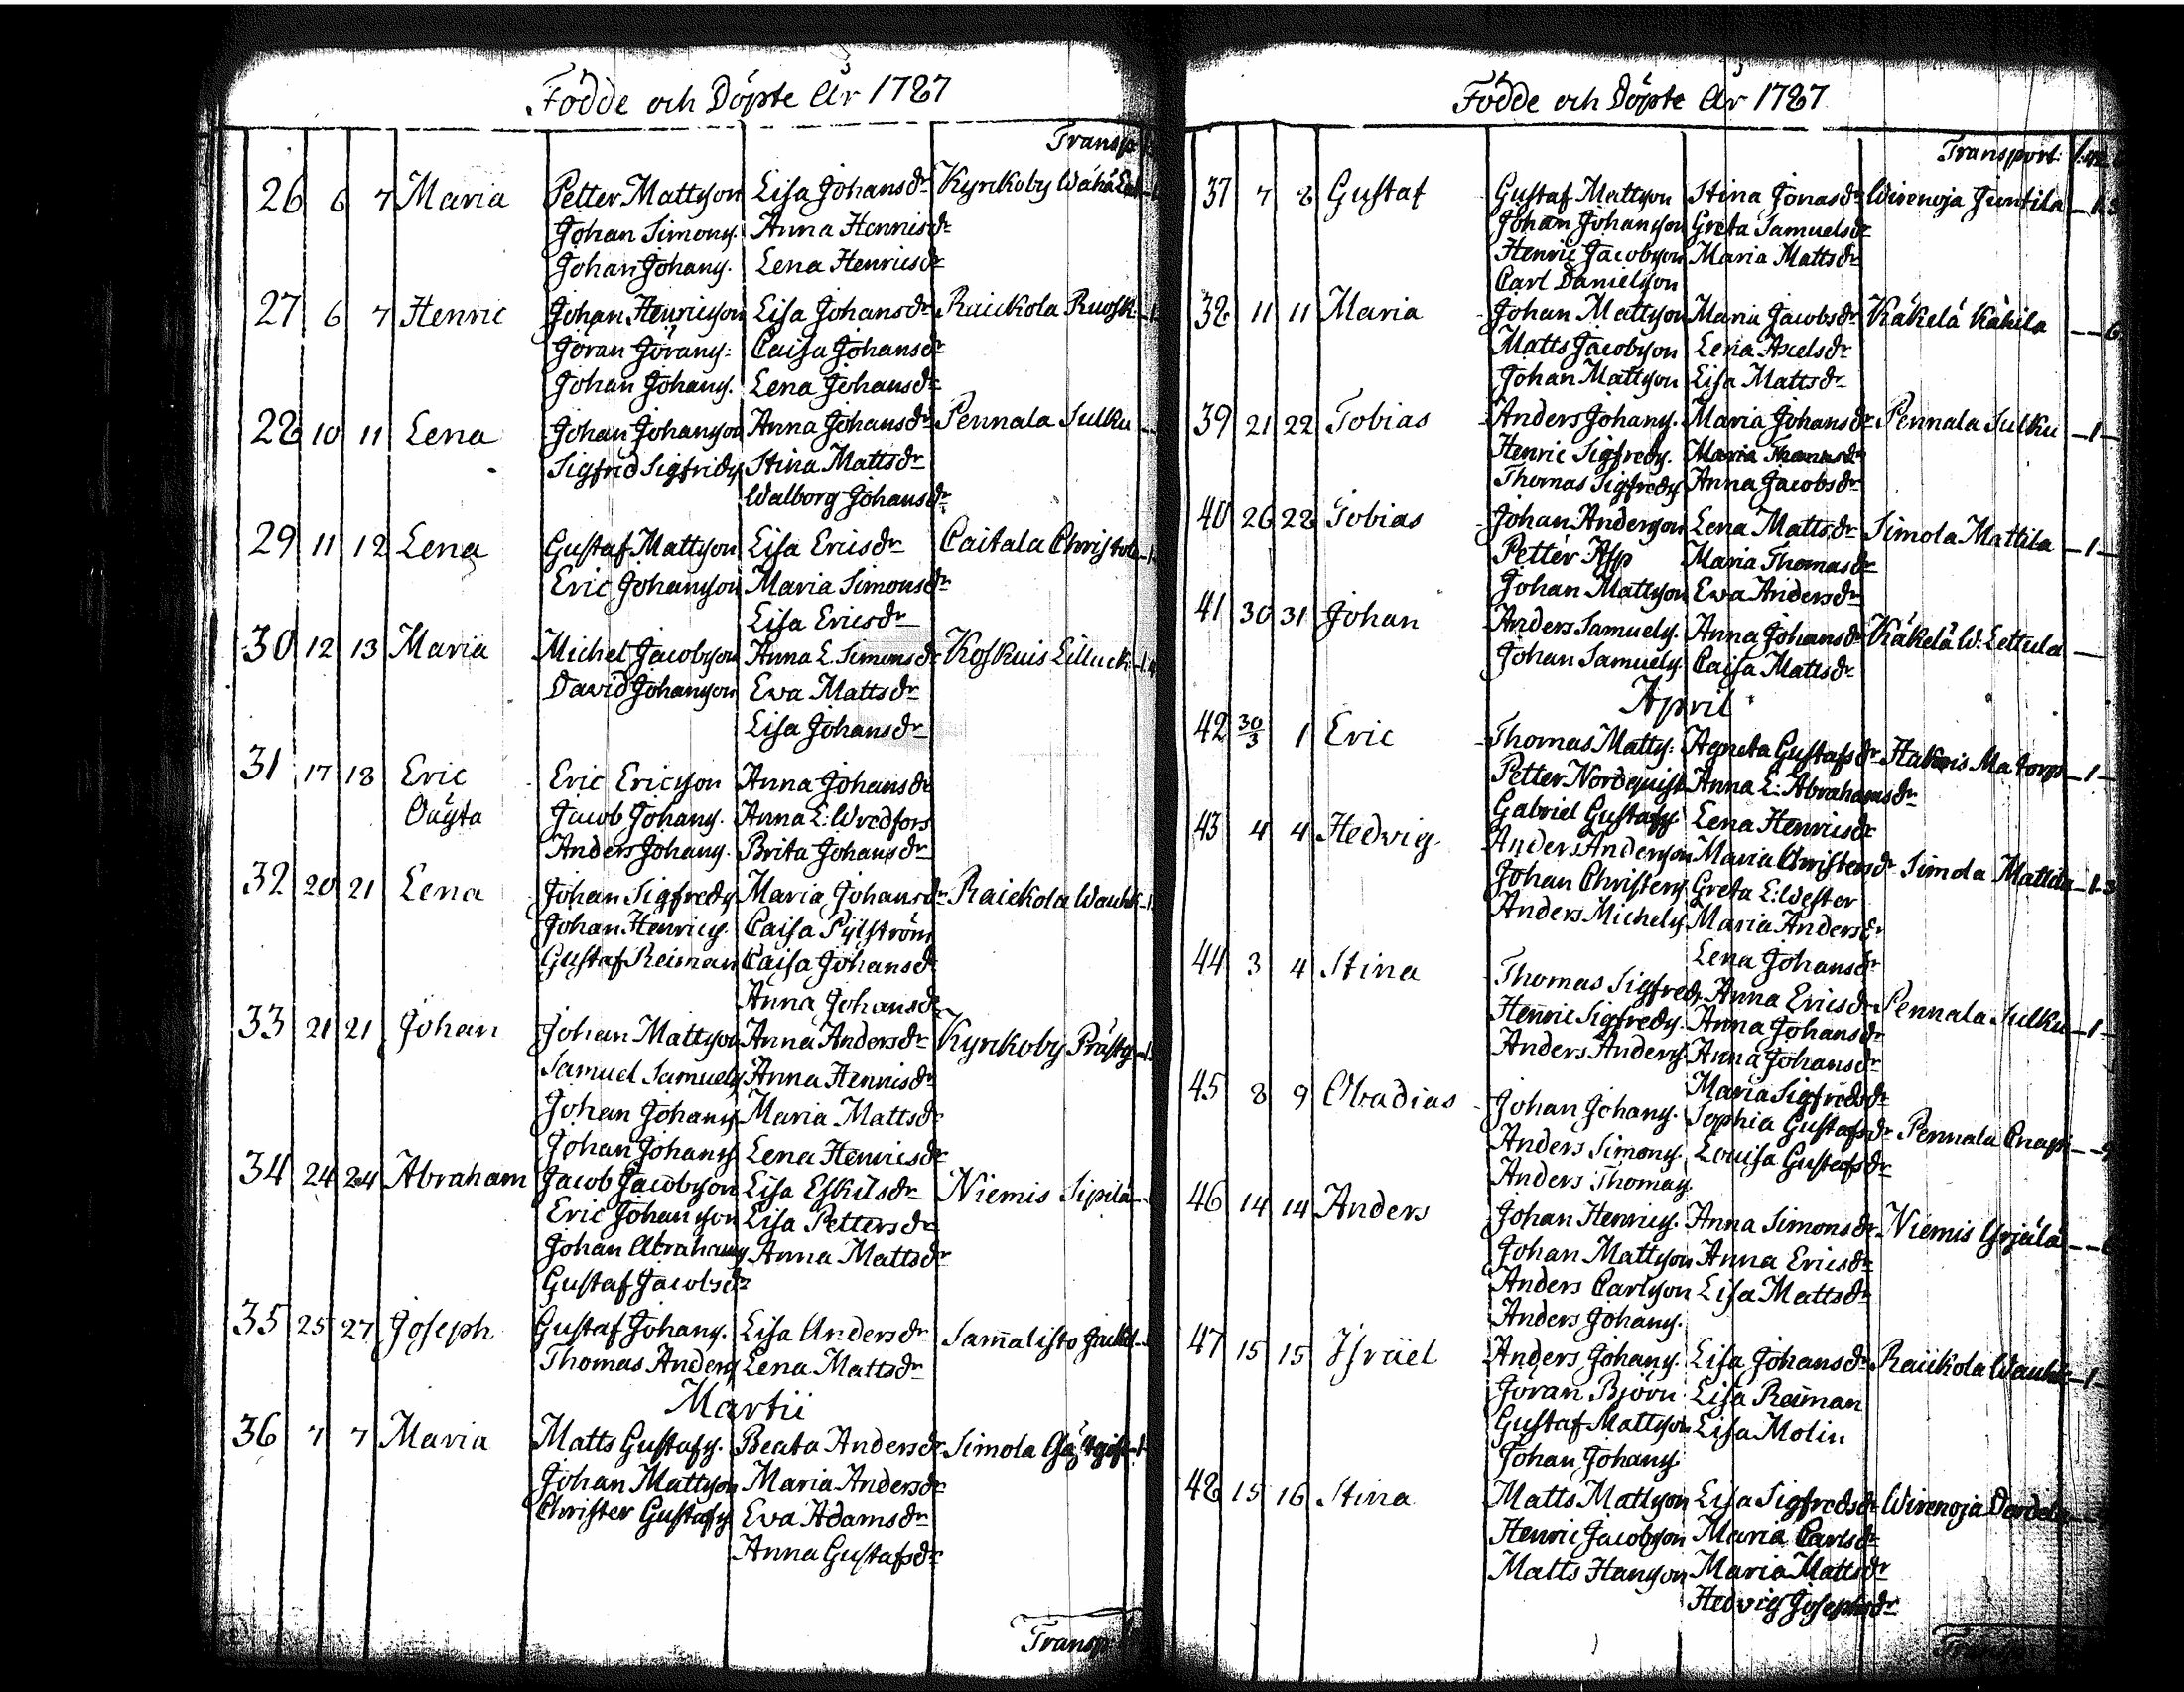 Födde och Döpte År 1787
Transp
26 6 7 Maria Petter Mattsson Lisa Johansdr Kyrckoby Wähä
Johan Simons. Anna Henricsdr
Johan Johans. Lena Henricsdr
27 6 7 Henric Johan Henricsson Lisa Johansdr Raickola Ruosk.
Jöran Görans: Caisa Johansdr
Johan Johans. Lena Johansdr
28 10 11 Lena Johan Johansson Anna Johansdr Pennala Sulku
Sigfrid Sigfrids Stina Mattsdr
Walborg Johansdr
29 11 12 Lena Gustaf Mattsson Lisa Ericsdr Caitala Christola
Eric Johansson Maria Simonsdr
Lisa Ericsdr
30 12 13 Maria Michel Jacobsson Anna L. Simonsdr Koskuis Lilluck
David Johansson Eva Mattsdr
Lisa Johansdr
31 17 18 Eric Eric Ericsson Anna Johansdr
Oäyta Jacob Johans. Anna L: Wredfors
Anders Johans. Brita Johansdr
32 20 21 Lena Johan Sigfreds Maria Johansdr Raickola Wauhk
Johan Henrics. Caisa Pylström
Gustaf Reiman Caisa Johansd
Anna Johansdr
33 21 21 Johan Johan Mattsson Anna Andersdr Kyrckoby Prästg
Samuel Samuels Anna Henricsdr
Johan Johans Maria Mattsdr
Johan Johans Lena Henricsdr
34 24 24 Abraham Jacob Jacobsson Lisa Eskilsdr Niemis Sipilä
Eric Johansson Lisa Pettersdr
Johan Abrahams Anna Mattsdr
Gustaf Jacobsdr
35 25 27 Joseph Gustaf Johans. Lisa Andersdr Sam̄alisto
Thomas Anders Lena Mattsdr
Martii
36 7 7 Maria Matts Gustafs. Beata Andersdr Simola
Johan Mattsson Maria Andersdr
Christer Gustafs Eva Adamsdr
Anna Gustafsdr
Transp
Födde och Döpte År 1787
Transport
37 7 8 Gustaf Gustaf Mattson Stina Jonasdr Wirenoja Juntila 1
Johan Johansson Greta Samuelsdr
Henric Jacobsson Maria Mattsdr
Carl Danielsson
38 11 11 Maria Johan Mattsson Maria Jacobsdr Käkelä Kähilä 6
Matts Jacobsson Lena Axelsdr
Johan Mattsson Lisa Mattsdr
39 21 22 Tobias Anders Johans. Maria Johansdr Pennala Sulku 1
Henric Sigfreds. Maria Thomasdr
Thomas Sigfreds Anna Jacobsdr
40 26 28 Tobias Johan Andersson Lena Mattsdr Simola Mattila 1
Petter Asp Maria Thomasdr
Johan Mattsson Eva Andersdr
41 30 31 Johan Anders Samuels. Anna Johansdr Käkelä W. Lettula
Johan Samuels Caisa Mattsdr
April
42 30/3 1 Eric Thomas Matts: Agneta Gustafsdr Hakois Ma torp 1
Petter Nordquist Anna L: Abrahamsdr
Gabriel Gustafs Lena Henricsdr
43 4 4 Hedvig Anders Andersson Maria Christersdr Simola Mattila 1 3
Johan Christers Greta L: Wester
Anders Michels Maria Andersdr
Lena Johansdr
44 3 4 Stina Thomas Sigfreds Anna Ericsdr Pennala Sulku 1
Henric Sigfreds. Anna Johansdr
Anders Anders Anna Johansdr
Maria Sigfredsdr
45 8 9 Obadias Johan Johans. Sophia Gustafsdr Pennala Cnapi
Anders Simons. Lovisa Gustafsdr
Anders Thomas
46 14 14 Anders Johan Henrics. Anna Simonsdr Niemis Yrjälä
Johan Mattsson Anna Ericsdr
Anders Carlsson Lisa Mattsdr
Anders Johans.
47 15 15 Israel Anders Johans. Lisa Johansdr Raickola Wauhk 1
Jöran Björn Lisa Reiman
Gustaf Mattsson Lisa Molin
Johan Johans
48 15 16 Stina Matts Mattsson Lisa Sigfredsdr Wirenoja
Henric Jacobsson Maria Carlsdr
Matts Hansson Maria Mattsdr
Hedvig Josephsdr